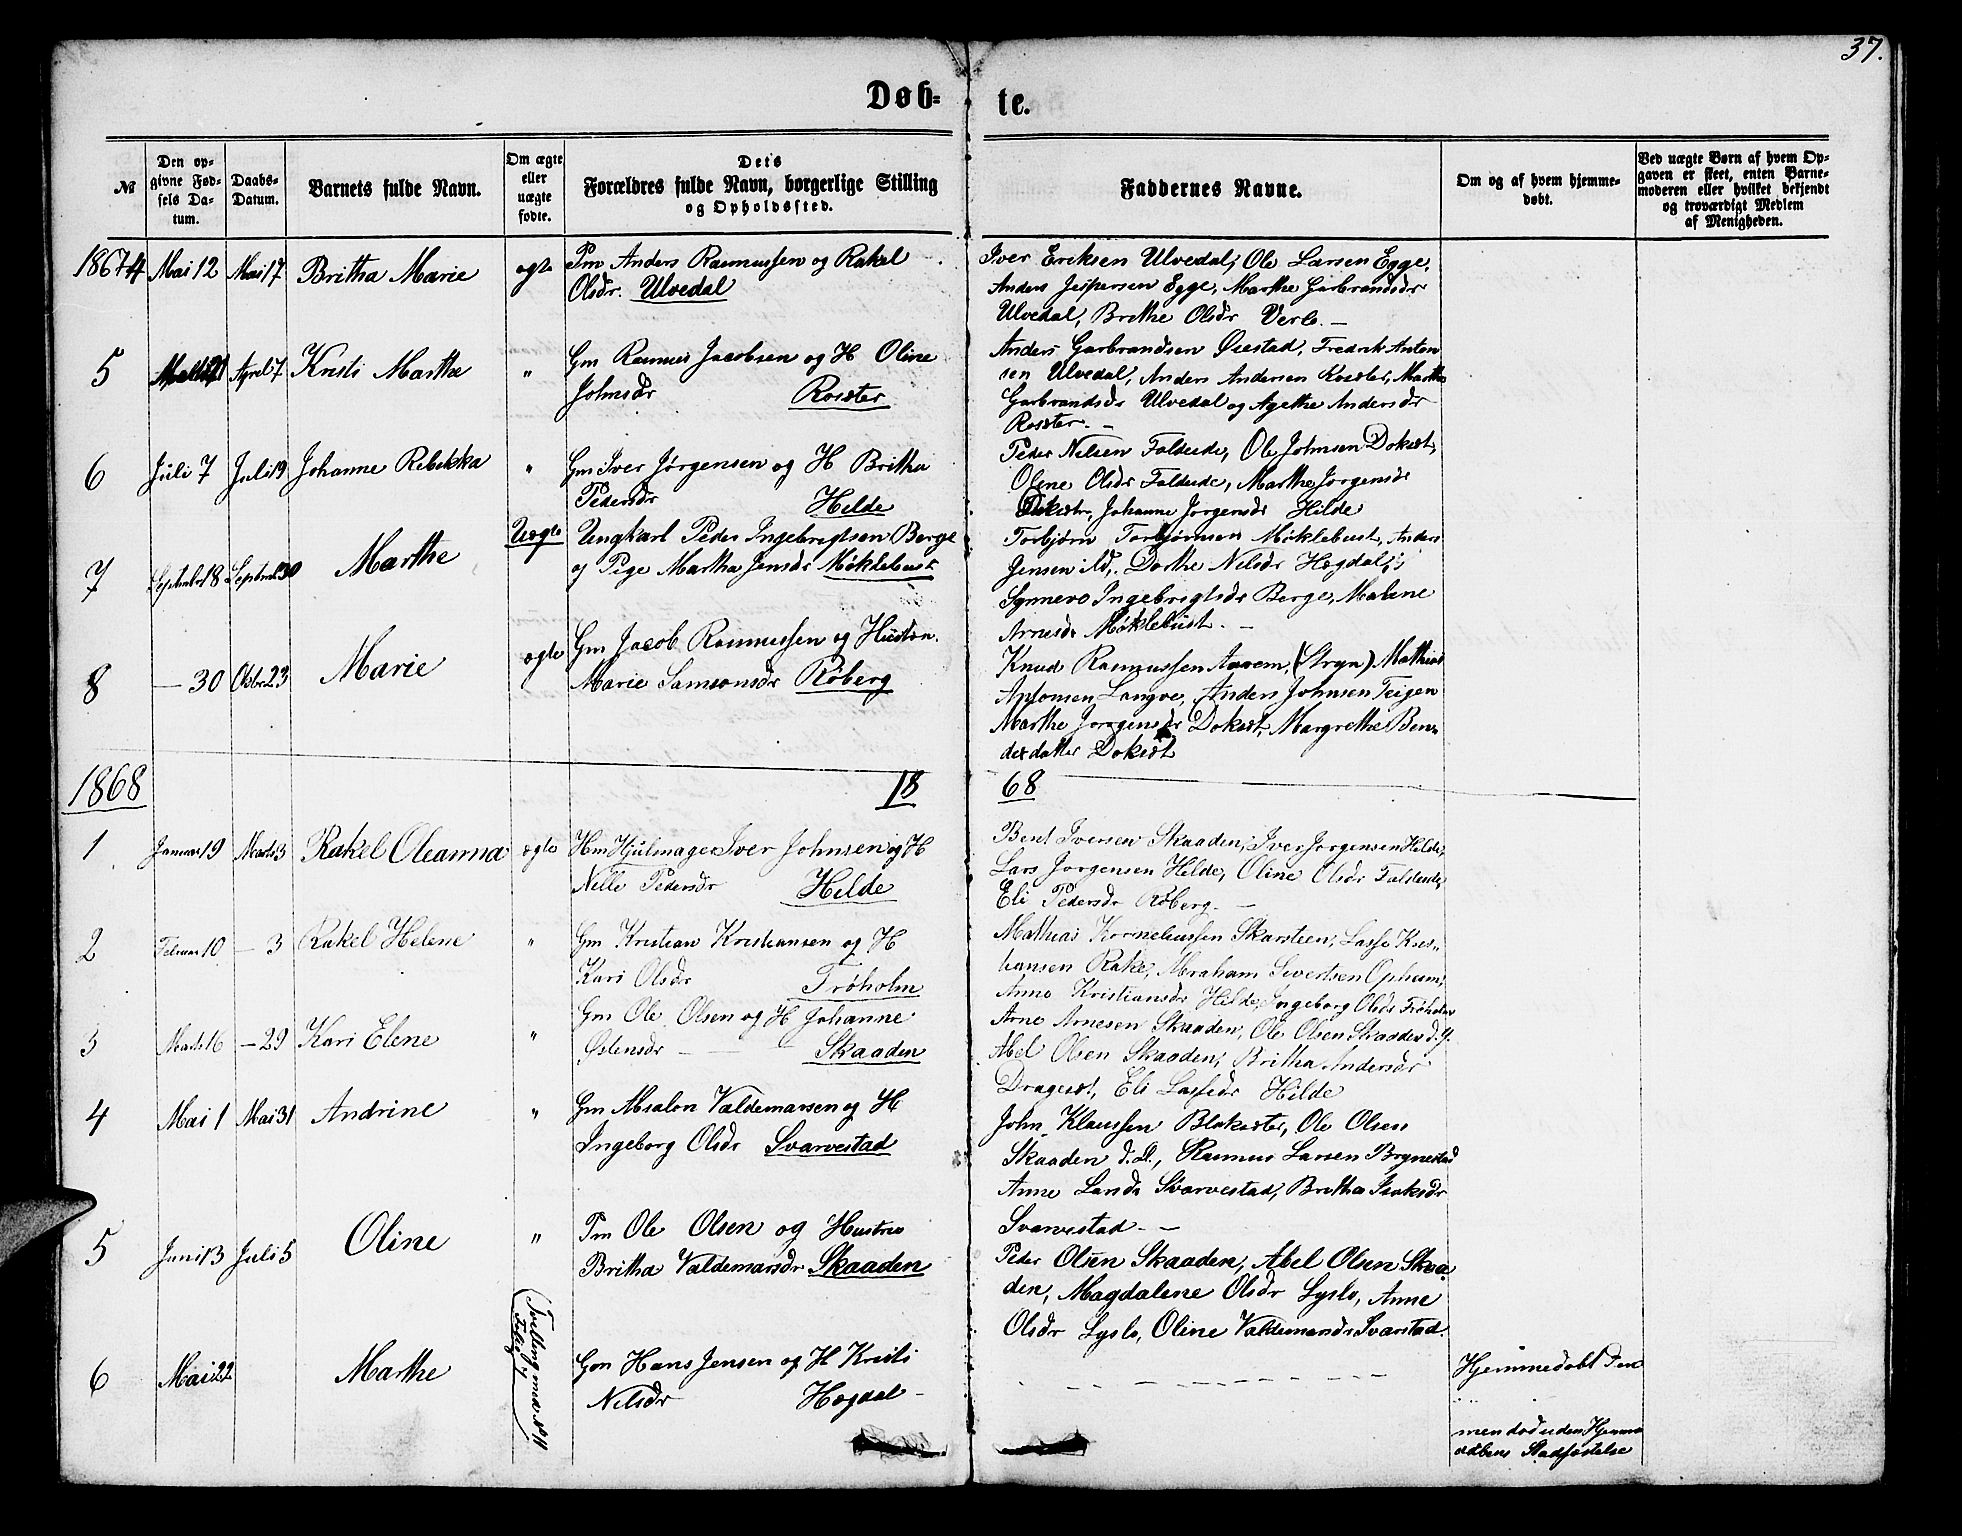 37.
Døb-
te.
№
Den op-
givne Fød-
sels Da-
tum.
Daabs-
Datum.
Barnets fulde Navn.
Om ægte
eller
uægte
fødte.
Dets
Forældres fulde Navn, borgerlige Stilling
og Opholdssted.
Faddernes Navne.
Om og af hvem hjemme-
døbt.
Ved uægte Børn af hvem Op-
gaven er skeet, enten Barne-
moderen eller hvilket bekjendt
og troværdigt Medlem
af Menigheden.
1867 4 Mai 12 Mai 17 Britha Marie ægte Pm Anders Rasmussen og Rakel
Olsdr. Ulvedal
Iver Eriksen Ulvedal, Ole Larsen Egge,
Anders Jespersen Egge, Marthe Garbrandsdr
Ulvedal, Brithe Olsdr Verlo. —
5 April 7 Kristi Marthe " Gm Rasmus Jacobsen og H Oline
Johnsdr Rosæter
Anders Garbrandsen Øiestad, Fredrik Anton
sen Ulvedal, Anders Andersen Rosæter, Marthe
Garbrandsdr Ulvedal og Agethe Andersdr
Rosæter. —
6 Juli 7 Juli 19 Johanne Rebekka " Gm Iver Jørgensen og H Britha
Pedersdr Hilde
Peder Nilsen Faldeide, Ole Johnsen Dokset,
Oline Olsdr Faldeide, Marthe Jørgensdr
Dokset, Johanne Jørgensdr Hilde
7 September 18 September 30 Marthe Uægte Ungkarl Peder Ingebrigtsen Berge
og Pige Martha Jensdr Møklebust
Torbjørn Torbjørnsen Møklebust, Anders
Jensen ild, Dorthe Nilsdr Høgdal,
Synnevo Ingebrigtsdr Berge, Malene
Arnesdr Møklebust. —
8 — 30 Octbr 23 Marie ægte Gm Jacob Rasmussen og Hustru
Marie Samsonsdr Røberg
Knud Rasmussen Aarem, (Stryn) Mathias
Apolonsen Langve, Anders Johnsen Teigen
Marthe Jørgensdr Dokset, Margrethe Ben-
desdatter Dokset
1868 18 68
1 Januar 19 Marts 3 Rakel Oleanna ægte Hm Hjulmager Iver Johnsen og H
Nille Pedersdr Hilde
Bent Iversen Skaaden, Iver Jørgensen Hilde,
Lars Jørgensen Hilde, Oline Olsdr Faldeide,
Eli Pedersdr Røberg. —
2 Februar 10 — 3 Rakel Helene " Gm Kristian Kristiansen og H
Kari Olsdr Frøholm
Mathias Korneliussen Skarsteen, Lasse Kris-
tiansen Rake, Abraham Sivertsen Opheim,
Anne Kristiansdr Hilde, Ingeborg Olsdr Frøholm
3 Marts 16 — 29 Kari Elene " Gm Ole Olsen og H Johanne
Østensdr — — Skaaden
Arne Arnesen Skaaden, Ole Olsen Skaaden d.y.
Abel Olsen Skaaden, Britha Andersdr
Dragesæt, Eli Lassedr Hilde
4 Mai 1 Mai 31 Andrine " Gm Absalon Valdemarsen og H
Ingeborg Olsdr Svarvestad
John Klaussen Blakeseter, Ole Olsen
Skaaden d.æ., Rasmus Larsen Brynestad
Anne Larsdr Svarvestad, Britha Isaksdr
Svarvestad. —
5 Juni 13 Juli 5 Oline " Pm Ole Olsen og Hustru
Britha Valdemarsdr Skaaden
Peder Olsen Skaaden, Abel Olsen Skaa-
den, Magdalene Olsdr Lyslo, Anne
Olsdr Lyslo, Oline Valdemarsdr Svarstad.
6 Mai 22 Marthe Tvilling med No 11 Gm Hans Jensen og H Kristi
Nilsdr Høgdal —
Hjemmedøbt
men død uden Hjemme
daabens Stadfæstelse